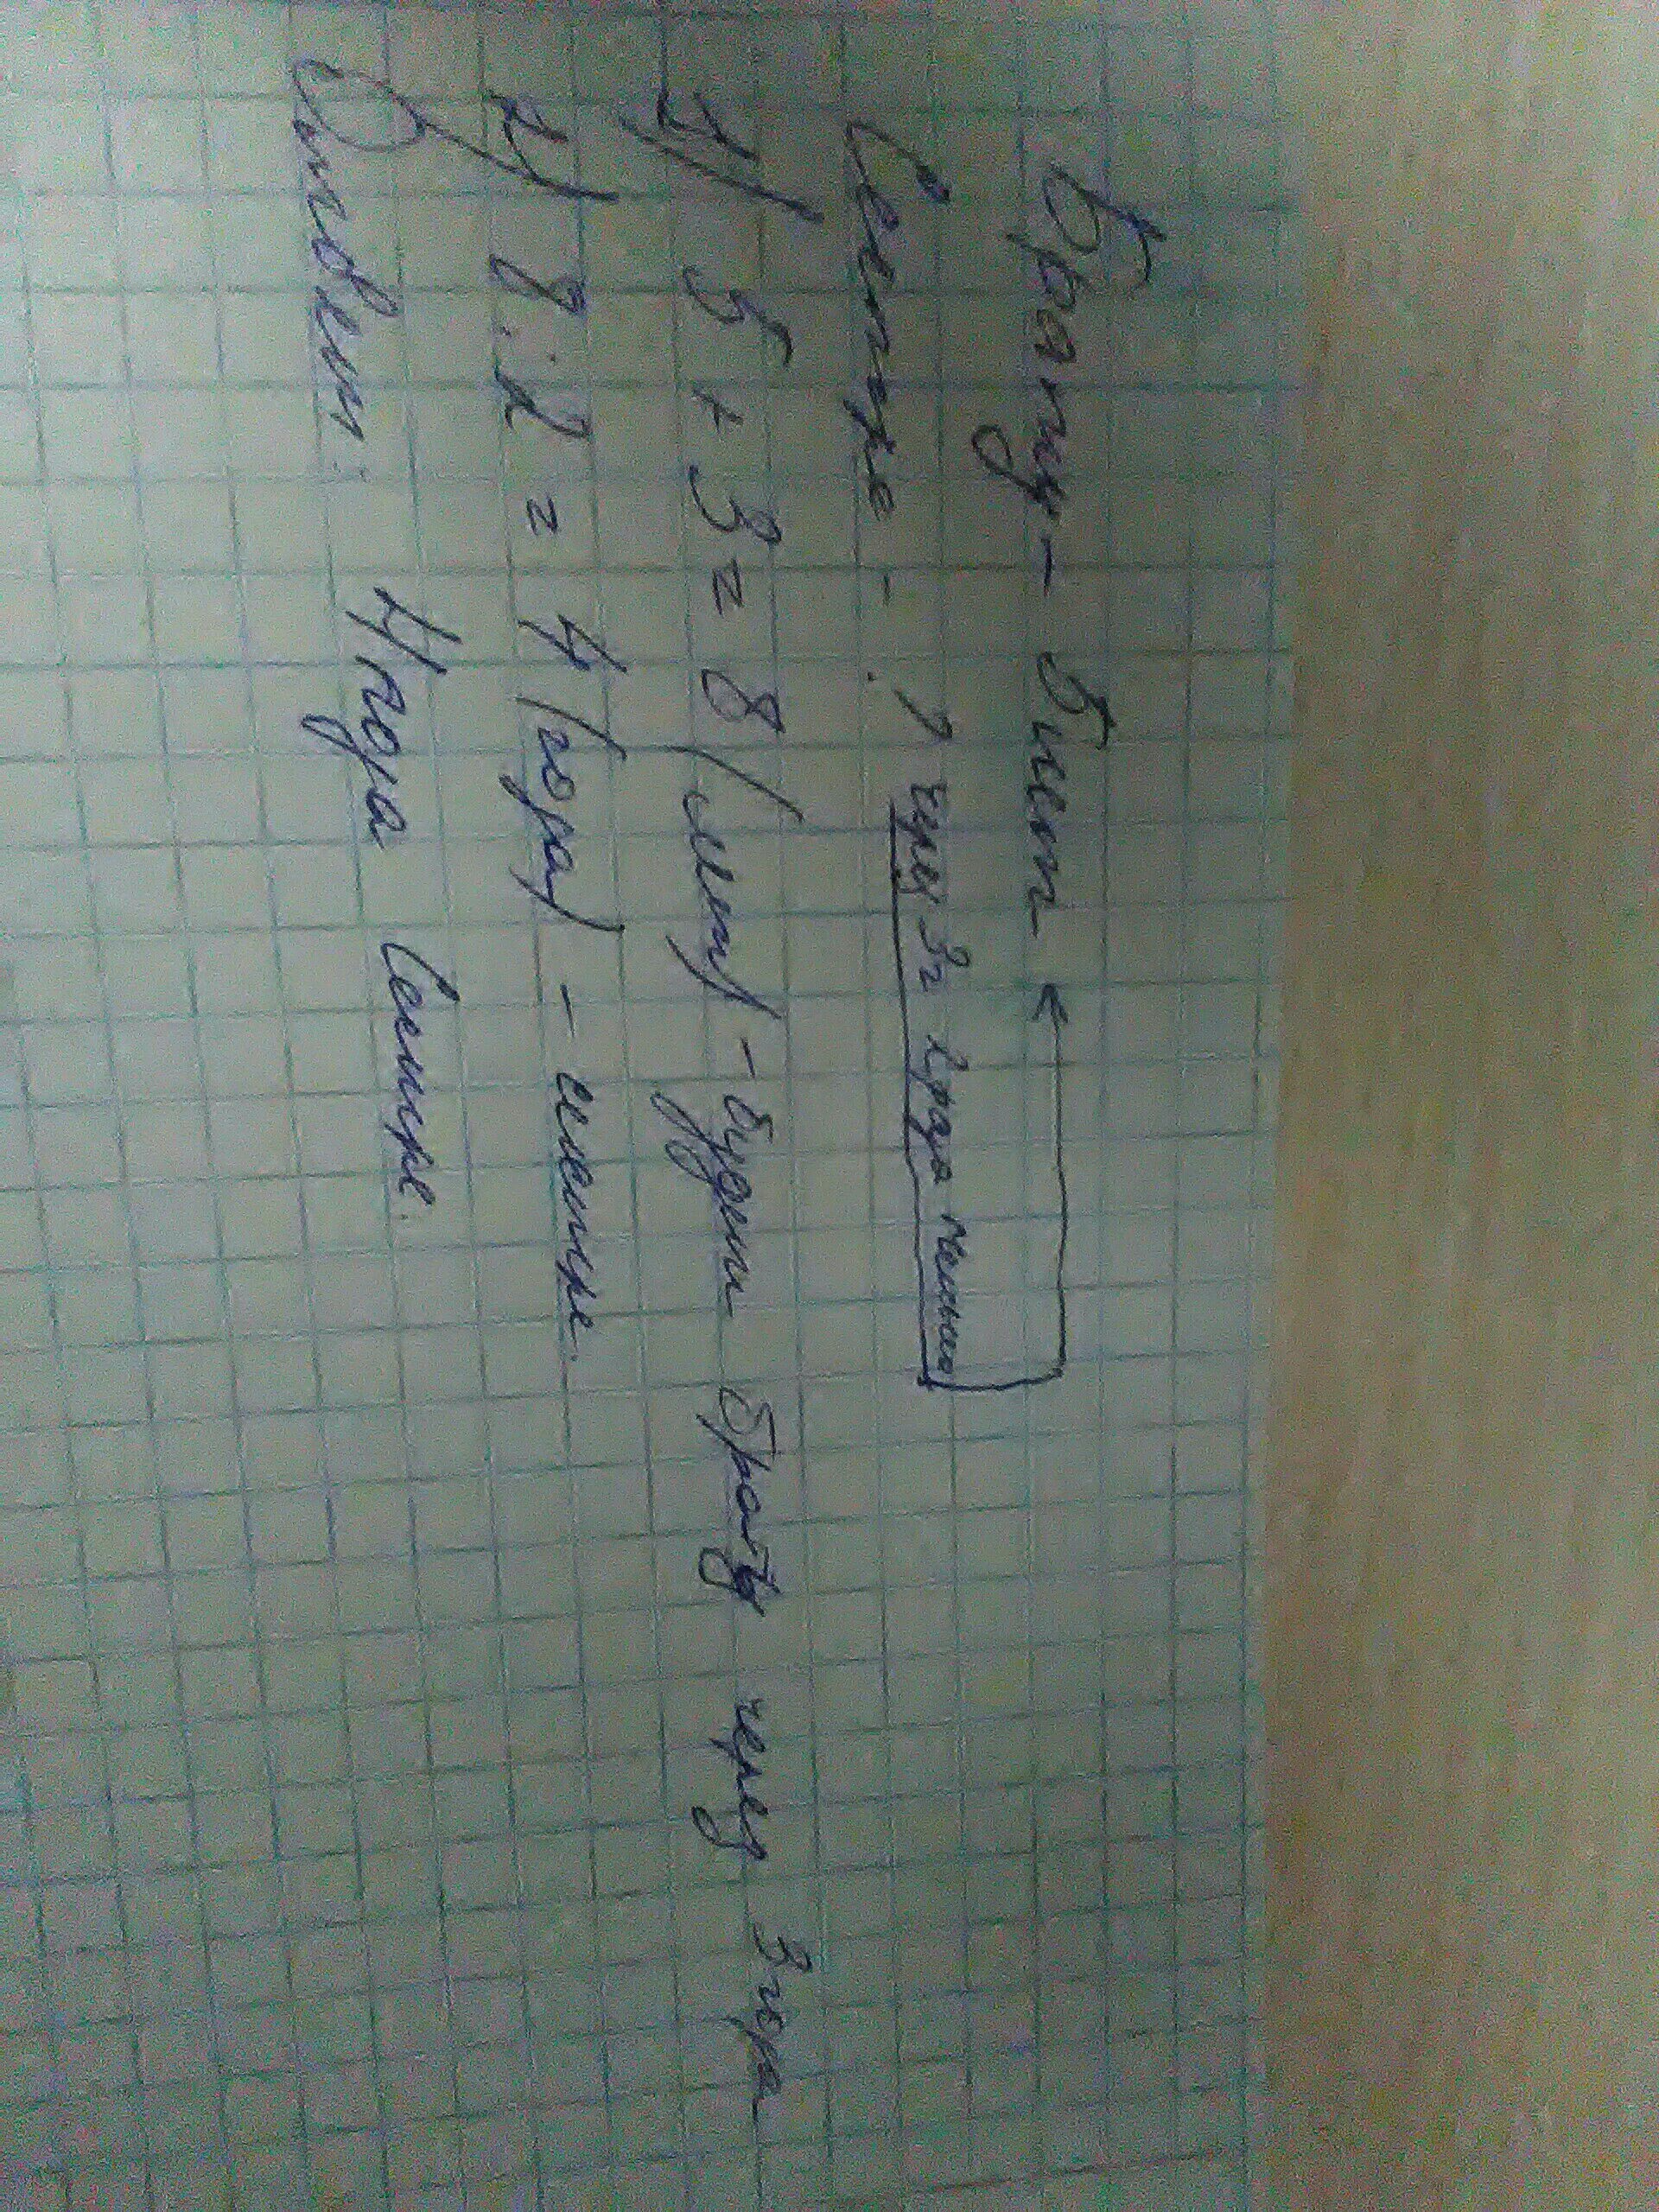 Брату - 5 лет
Сестре - ? через 3г 2 раза меньше
1) 5 + 3 = 8 (лет) - будет брату через 3 года
2) 8 : 2 = 4 (года) - сестре.
Ответ: 4 года Сестре.